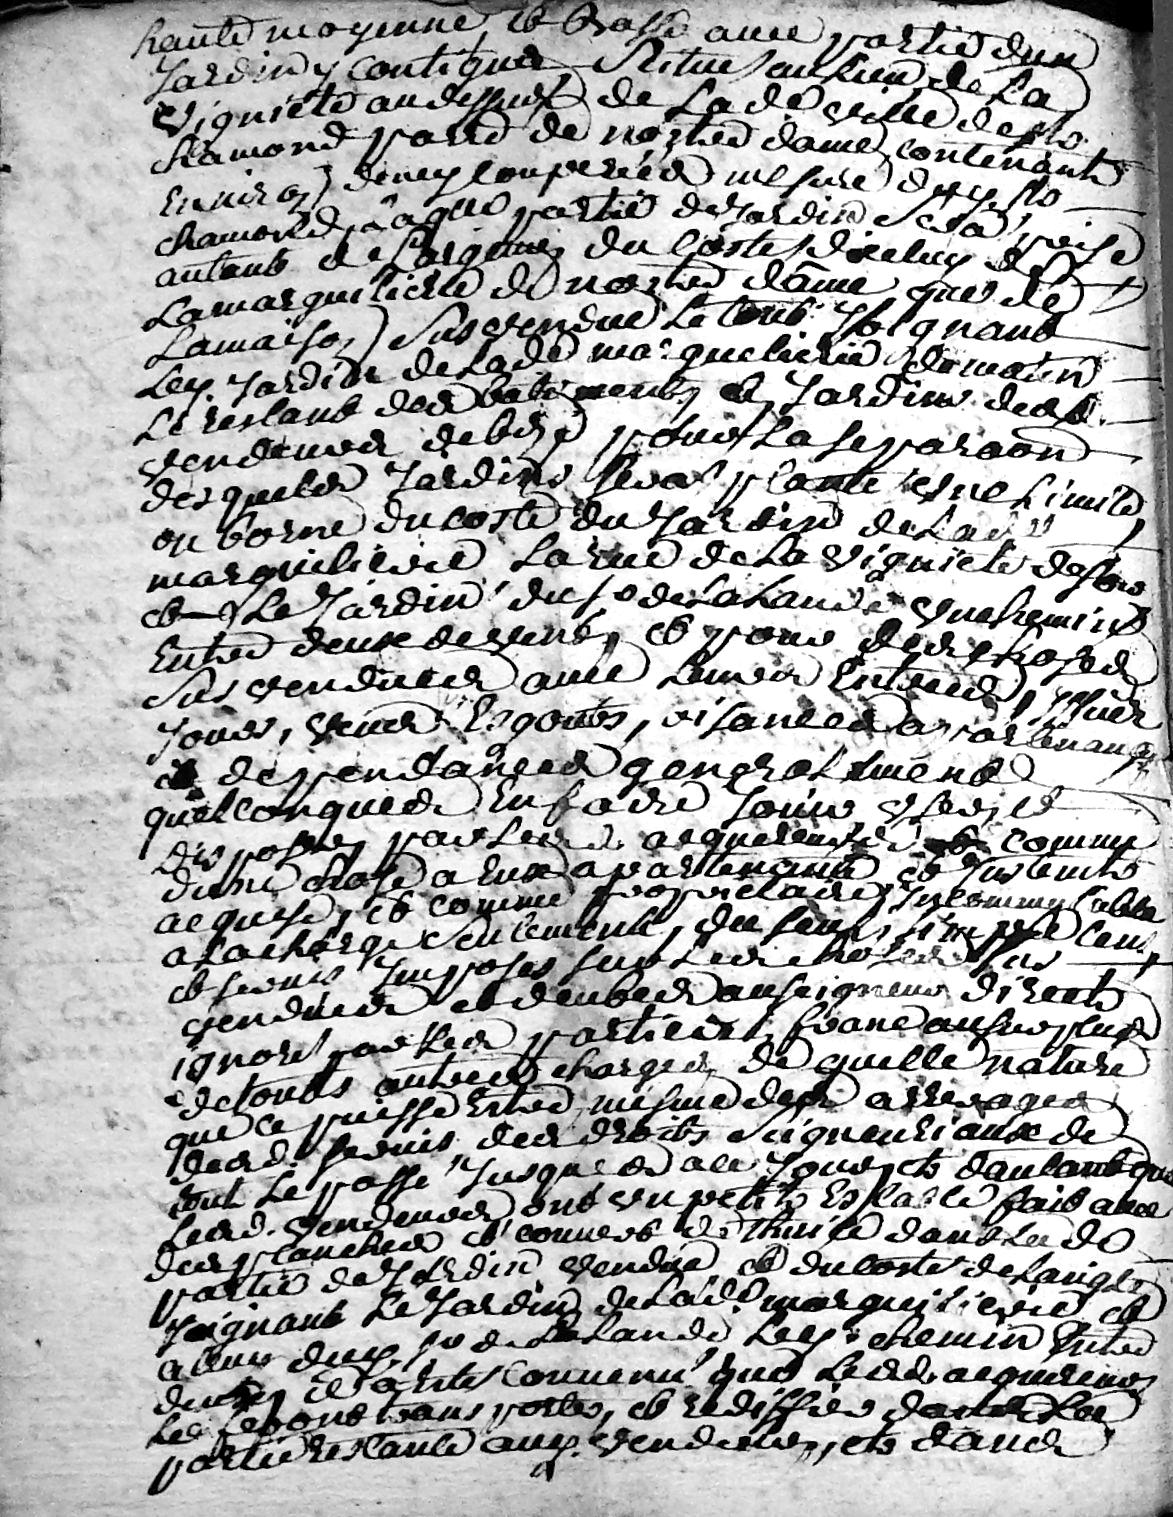 haute moyenne et basse avec partie d'un
Jardin y contigue Situé au lieu de La
Vigniete au dessus de Lade ville de St
Chamond paroisse de nostre dame contenant
Environ demy couperée mesure dud St
chamond Laquelle partie de Jardin sera prise
autant de largeur du Costé diceluy de
Lamarguilierie de nostre dame que de
Lamaison Sus vendue Le tout Joignant
Led. Jardin de Lade marguilierie de matin
Le restant des batiments et Jardins desd.
vendeurs de bize pour La separaon
desquels Jardins Sera planté une Limite
ou borne du costé du Jardin de Lade
marguilierie La rue de La Vigniete de soir
et Le Jardin du Sr de Lalande un chemin
Entre deux de vent, et pour desd choses
Sus vendues avec Leurs Entrées, Issues
Jours, veues Esgouts, aisances apartenances
et dependances generalement
quelconques En faire Jouir User et
disposer par Lesd. acquereurs comme
dune chose a Eux apartenante et Justement
acquise, et comme proprietaires Incommutables
a la charge Seulement, du sens simple cens
et servis Imposés sur Les choses Sus
vendues et deubes au seigneur direct
ignoré par Les parties franc au surplus
de touts autres charges, de quelle nature
que ce puisse Estre mesme des arrerages
desd. servis, des droits Seigneuriaux de
tout Le passé Jusques a ce Jour, et dautant que
Lesd. vendeurs ont un petit Estable fait avec
des planches et couvert de Thuile dans Lade
partie de Jardin vendue et du Costé de Langle
Joignant Le Jardin de Lade marguilierie et
a celuy dud. Sr de Lalande Led. chemin Entre
deux, il a esté convenu que Lesd. acquereurs
Le feront transporter, et rediffier dans La
partie restante aud. vendeurs, et dans